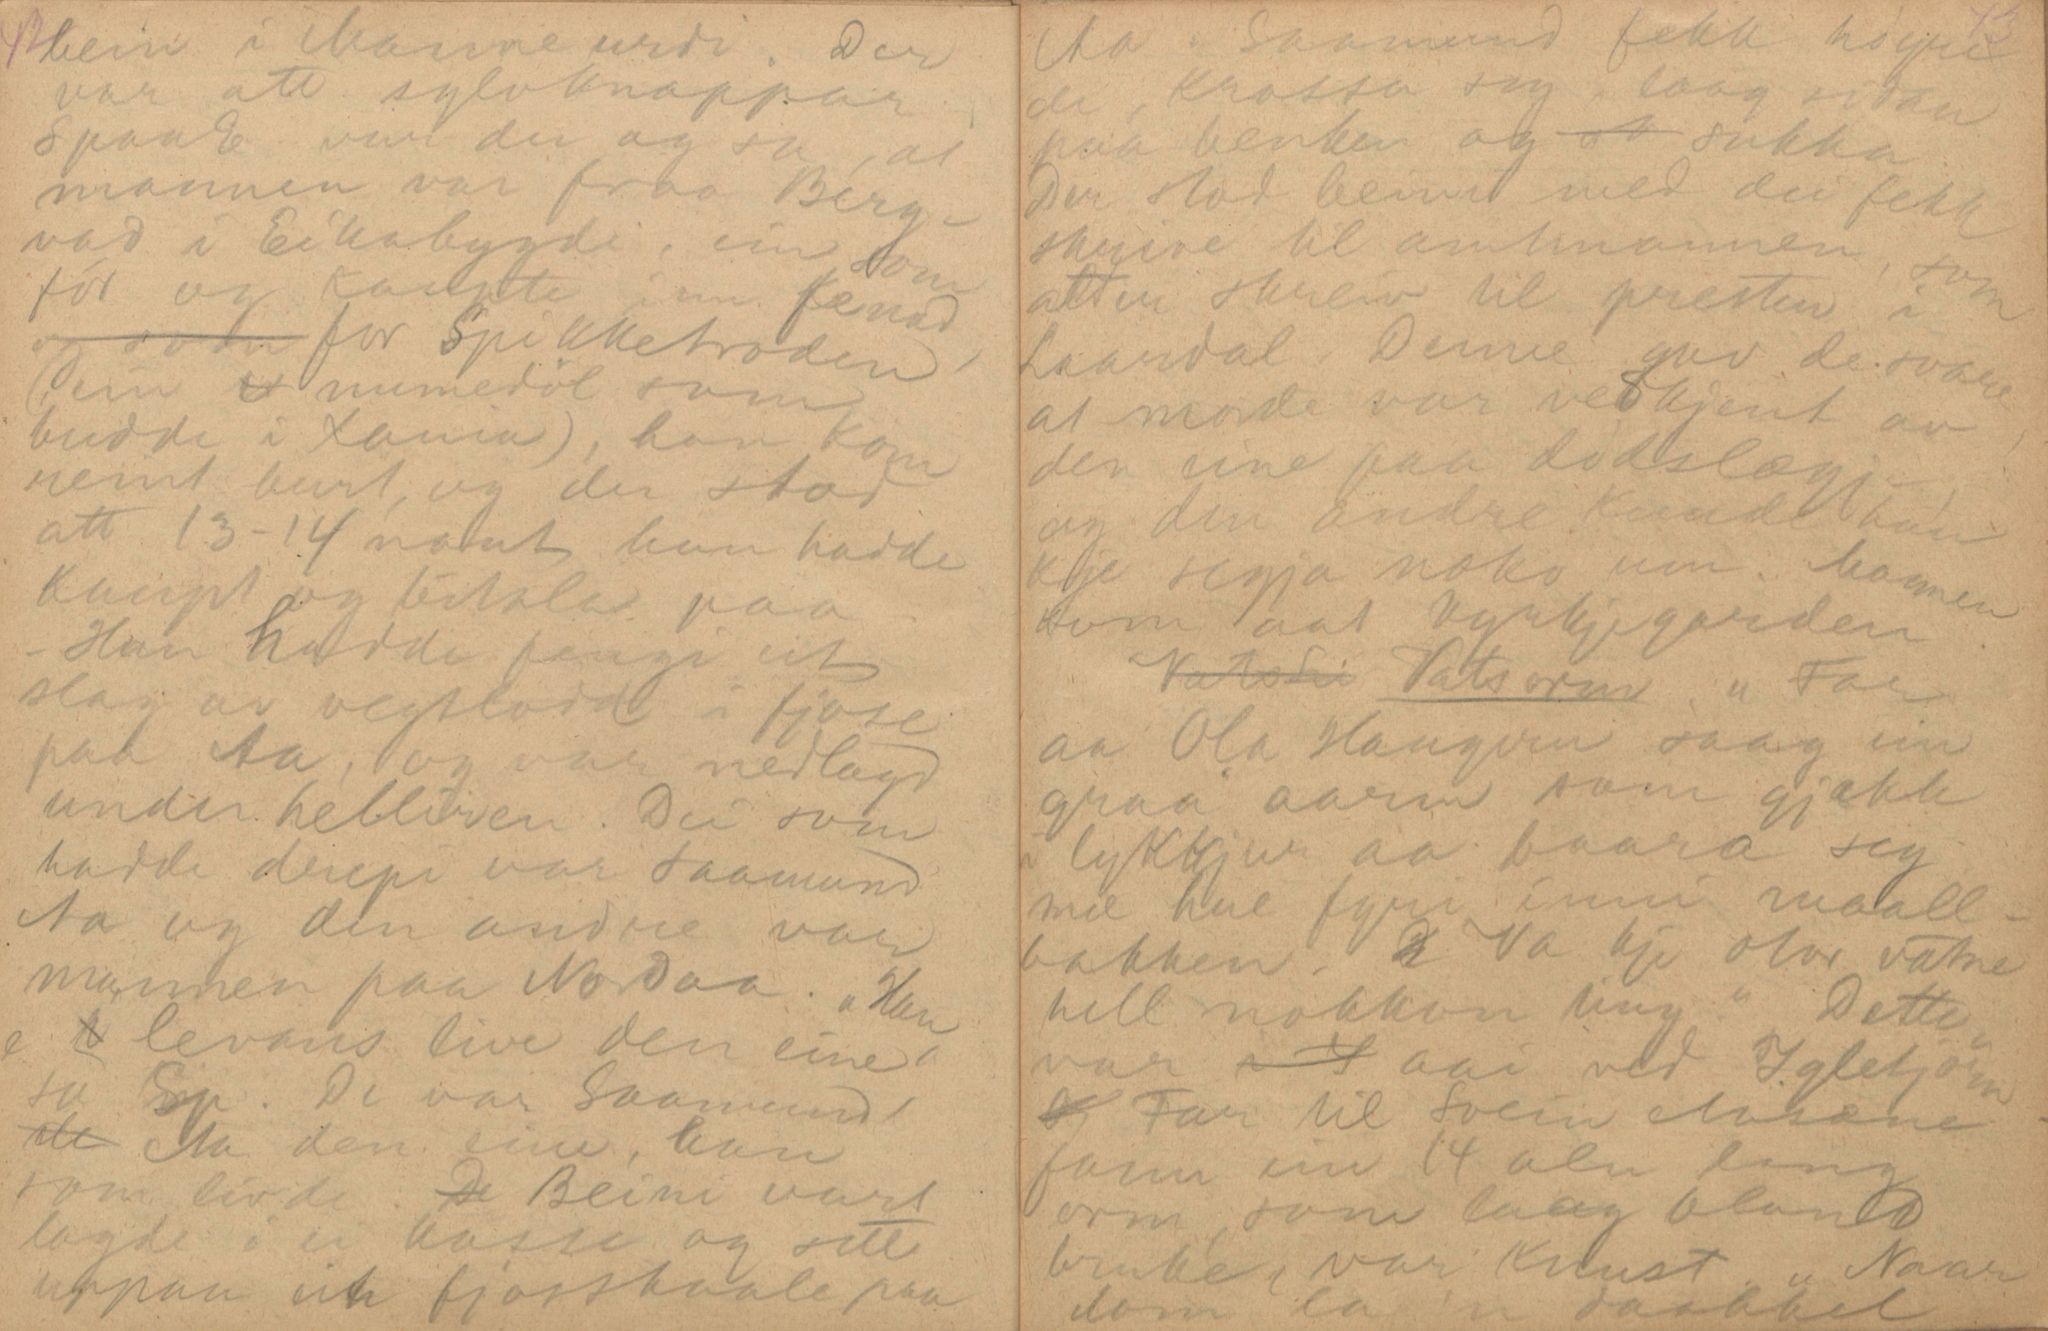 42
bein i Manneurdi. Der
var att sylvknappar
Spaak var der og sa, at
mannen var fraa Berg-
vad i Eikabygdi, ein som
för og kaupte inn fenad
og sodn for Spikketroden
(ein numedöl som
budde i Xania), han kom
reint burt, og der stod
att 13-14 naut han hadde
kaupt og betala paa
- Han hadde fengi eit
slag av vegtlodd i fjose
paa Aa, og var nedlagd
under helliren. Dei som
hadde drepi var Saamund
Aa og den andre var
mannen paa Nordaa. "Han
e levans live den eine"
sa Sp. De var Saamund
Aa den eine, han
som livde. De Beini vart
lagde i ei kasse og sett
uppaa eit fjosskaale paa
43
Aa. Saamund fekk höyre
de, krossa seg, laag sidan
paa benken og sukka
Der stod beini med dei fekk
skrive til amtmannen, som
atter skreiv til presten i
Laardal. Denne gav de svare
at morde var vedkjent av
den eine paa dödslægj-,
og den andre kunde han
kje segja noko um. Mannen
kom aat kyrkjegarden
Vatsdi Vatsorm. "Far
aa Ola Haugen saag ein
graa aarm som gjækk
i lykkjur aa baara seg
mæ hue fyri inni maall-
bakken. Va kje stor vatne
hell nokkon ting." Dette
var aai ved Igletjönn
Far til Svein Aasane
fann ein 14 aln lang
orm, som laag bland
brake, var kunst. "Naar
dom la 'n daabbel